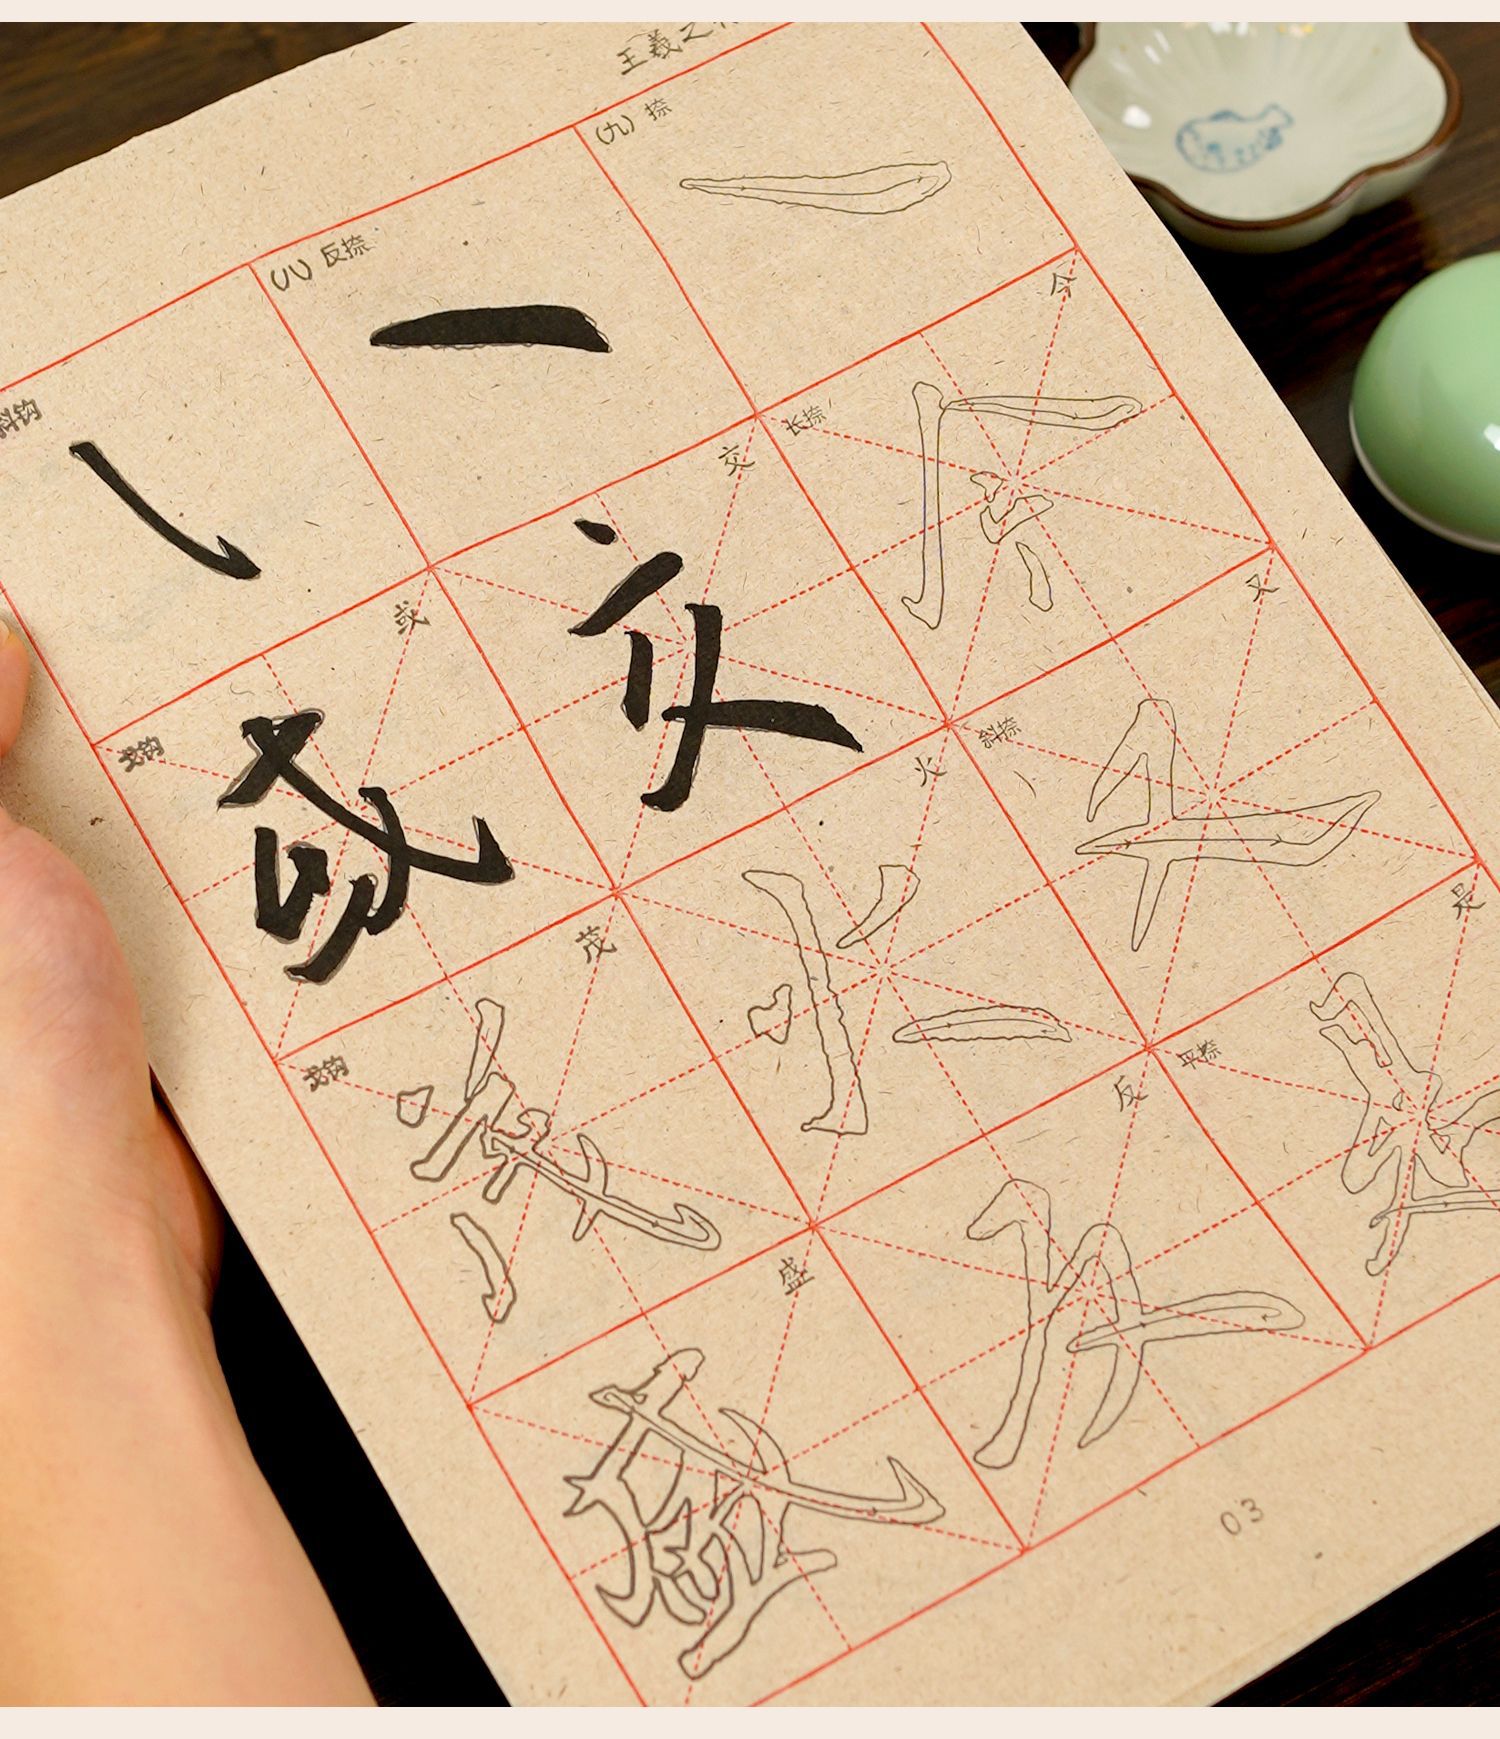 王羲之
(九) 捺
(八) 反捺
斜钩
今
长捺
交
交
又
斜捺
或
戈钩
或
火
火
是
平捺
是
茂
戈钩
茂
反
反
盛
盛
03